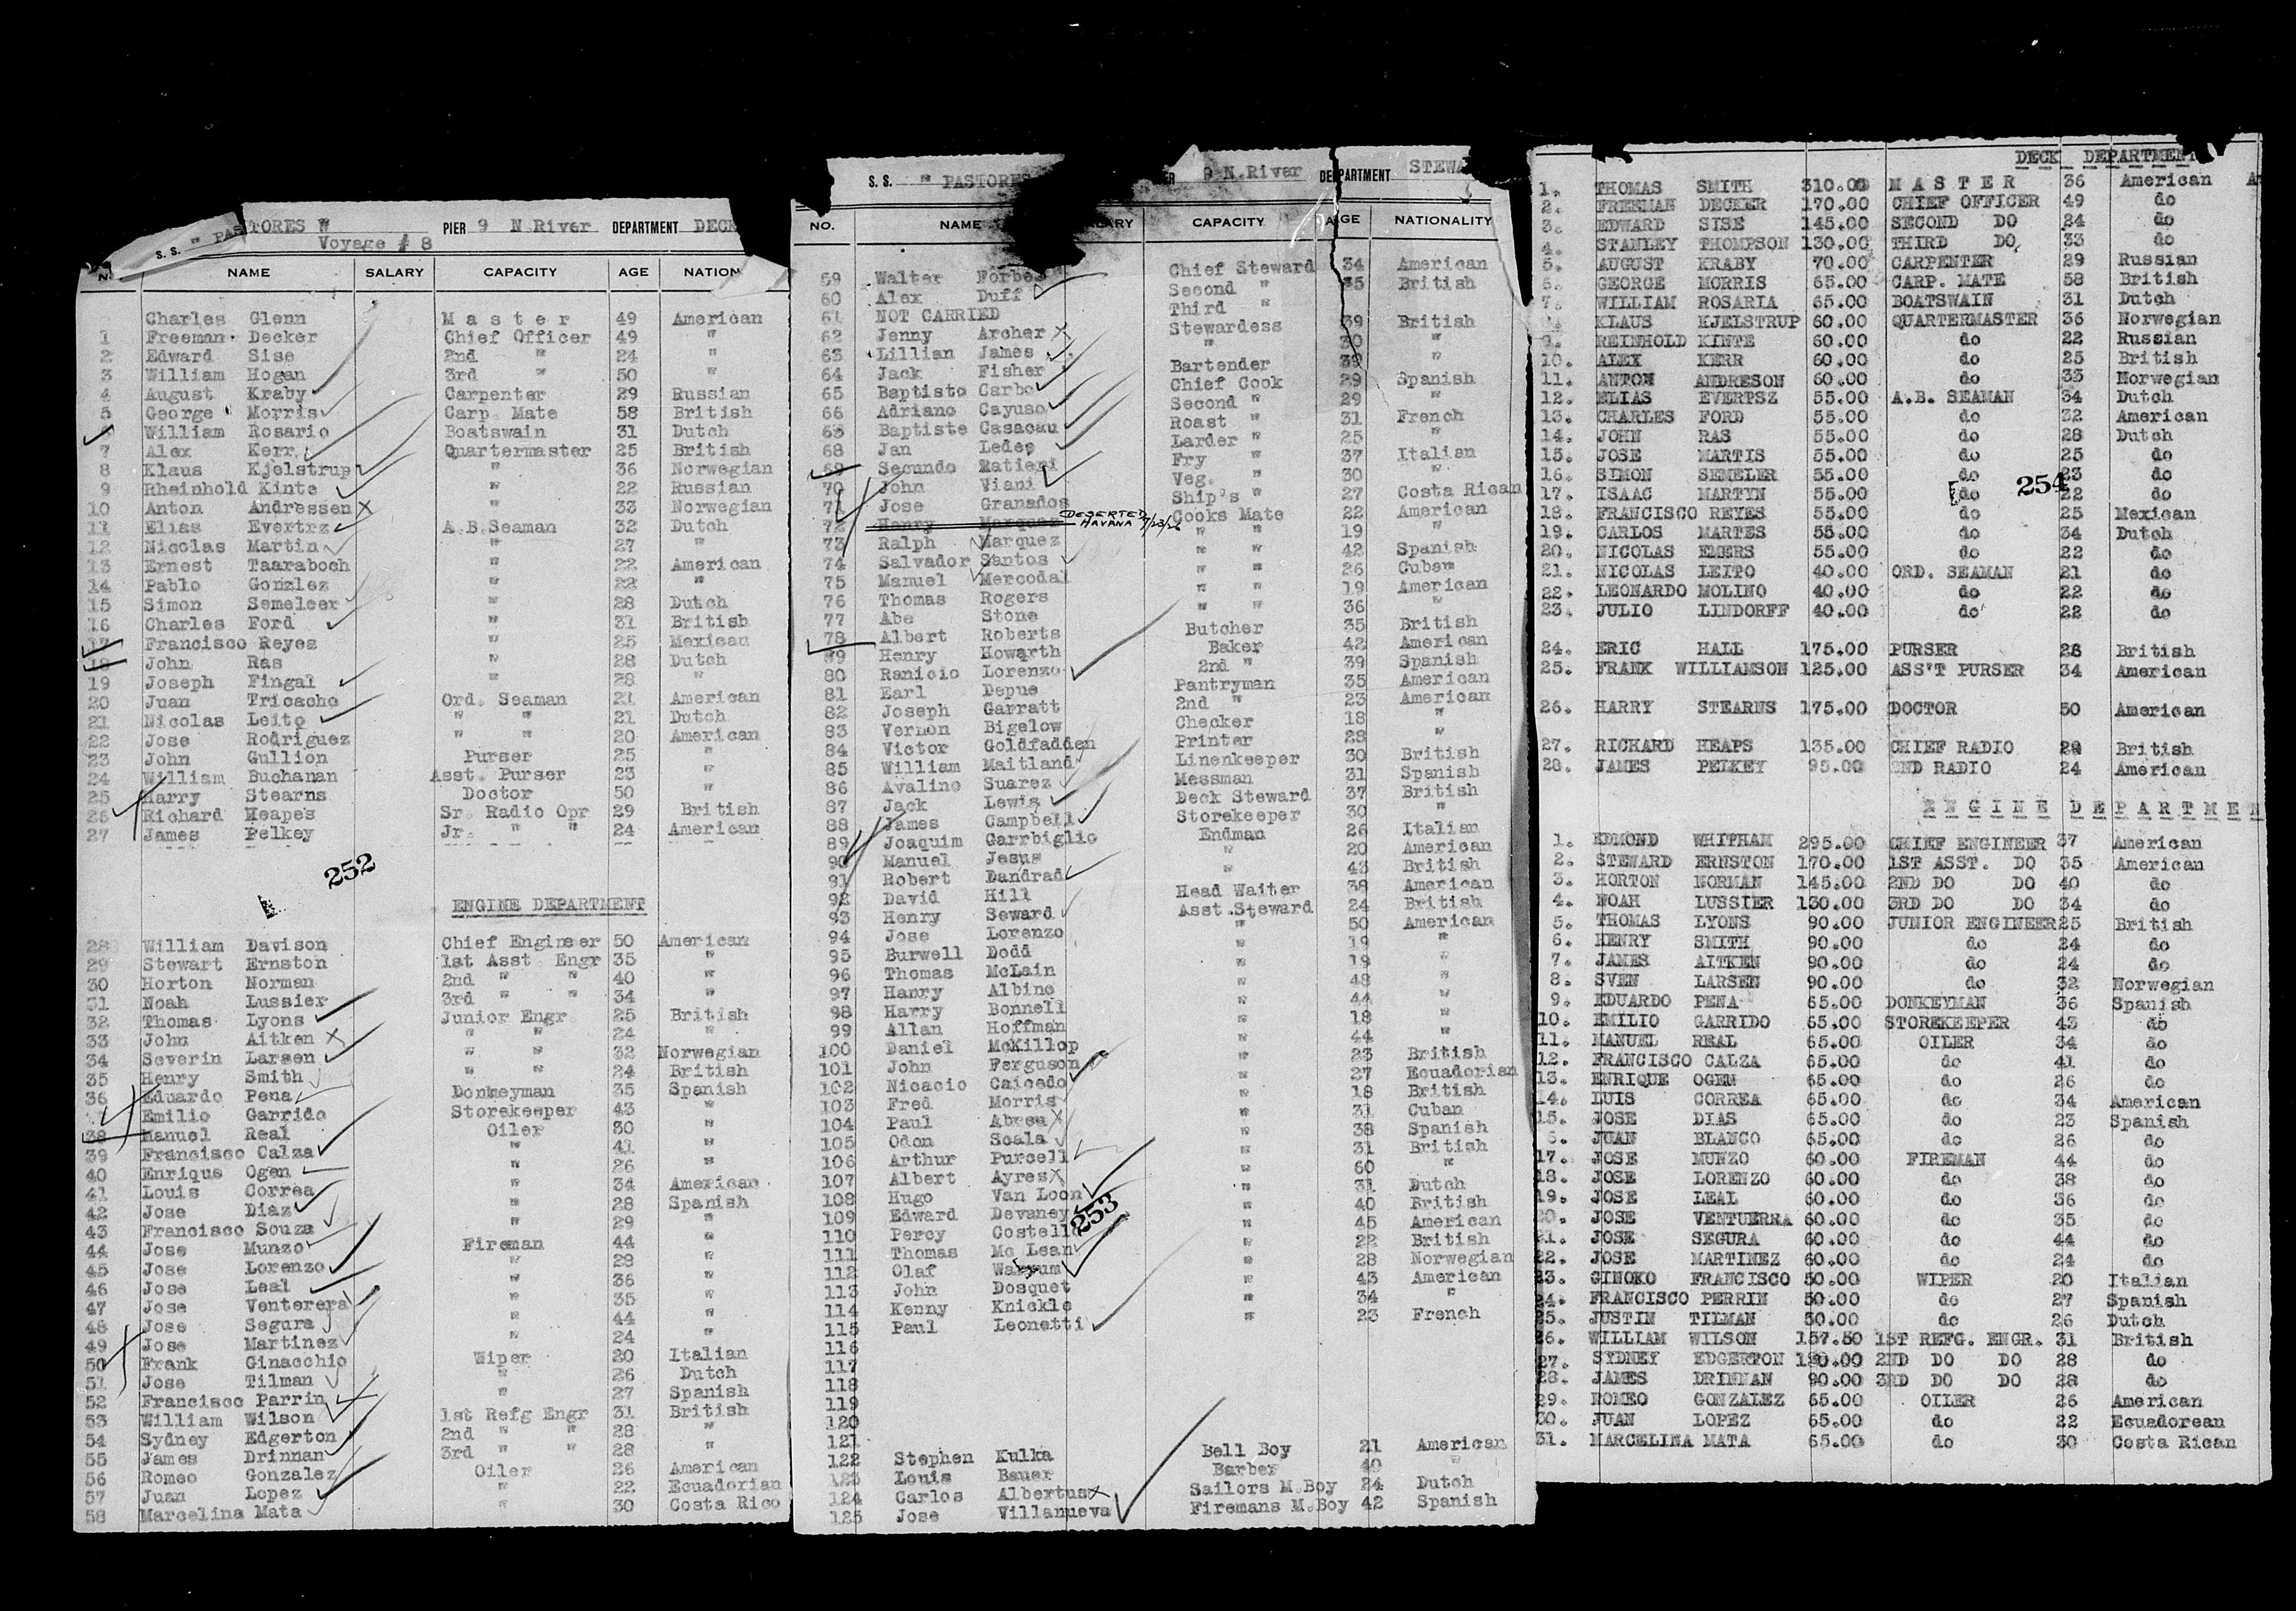 S. S. " PASTORES " PIER 9 N.River DEPARTMENT DECK
Voyage # 8
NAME SALARY CAPACITY AGE NATION
Charles Glenn M a s t e r 49 American
1 Freeman Decker Chief Officer 49 "
2 Edward Sise 2nd " 24 "
3 William Hogan 3rd " 50 "
4 August Kraby Carpenter 29 Russian
5 George Morris Carp. Mate 58 British
6 William Rosario Boatswain 31 Dutch
7 Alex Kerr Quartermaster 25 British
8 Klaus Kjelstrup " 36 Norwegian
9 Rheinhold Kinte " 22 Russian
10 Anton Andressen " 33 Norwegian
11 Elias Evertrz A.B.Seaman 32 Dutch
12 Nicolas Martin " 27 "
13 Ernest Taaraboch " 22 American
14 Pablo Gonzlez " 22 "
15 Simon Semeleer " 28 Dutch
16 Charles Ford " 31 British
17 Francisco Reyes " 25 Mexican
18 John Ras " 28 Dutch
19 Joseph Fingal " 28 "
20 Juan Tricacho Ord. Seaman 21 American
21 Nicolas Leito " " 21 Dutch
22 Jose Rodriguez " " 20 American
23 John Gullion Purser 25 "
24 William Buchanan Asst. Purser 23 "
25 Harry Stearns Doctor 50 "
26 Richard Heapes Sr. Radio Opr 29 British
27 James Pelkey Jr. " " 24 American
252
ENGINE DEPARTMENT
28 William Davison Chief Engineer 50 American
29 Stewart Ernston 1st Asst Engr 35 "
30 Horton Norman 2nd " " 40 "
31 Noah Lussier 3rd " " 34 "
32 Thomas Lyons Junior Engr 25 British
33 John Aitken " " 24 "
34 Severin Larsen " " 32 Norwegian
35 Henry Smith " " 24 British
36 Eduardo Pena Donkeyman 35 Spanish
37 Emilio Garrido Storekeeper 43 "
38 Manuel Real Oiler 30 "
39 Francisco Calza " 41 "
40 Enrique Ogen " 26 "
41 Louis Correa " 34 American
42 Jose Diaz " 28 Spanish
43 Francisco Souza " 29 "
44 Jose Munzo Fireman 44 "
45 Jose Lorenzo " 28 "
46 Jose Leal " 36 "
47 Jose Venterera " 35 "
48 Jose Segura " 44 "
49 Jose Martinez " 24 "
50 Frank Ginacchio Wiper 20 Italian
51 Jose Tilman " 26 Dutch
52 Francisco Parrin " 27 Spanish
53 William Wilson 1st Refg Engr 31 British
54 Sydney Edgerton 2nd " " 28 "
55 James Drinnan 3rd " " 28 "
56 Romeo Gonzalez Oiler 26 American
57 Juan Lopez " 22 Ecuadorian
58 Marcelina Mata " 30 Costa Rico
S. S. " PASTORES 9 N.River DEPARTMENT STEWA
NO. NAME CAPACITY AGE NATIONALITY
59 Walter Forbes Chief Steward 34 American
60 Alex Duff Second " 35 British
61 NOT CARRIED Third "
62 Jenny Archer Stewardess 39 British
63 Lillian James " 30 "
64 Jack Fisher Bartender 39 "
65 Baptisto Carbo Chief Cook 29 Spanish
66 Adriano Cayuso Second " 29 "
65 Baptiste Casacau Roast " 31 French
68 Jan Ledes Larder " 25 "
69 Secundo Ratieri Fry " 37 Italian
70 John Viani Veg. " 30 "
71 Jose Granados Ship's " 27 Costa Rican
72 Henry Marquez DESERTED HAVANA 7/23/26 Cooks Mate 22 American
73 Ralph Marquez " " 19 "
74 Salvador Santos " " 42 Spanish
75 Manuel Mercodal " " 26 Cuban
76 Thomas Rogers " " 19 American
77 Abe Stone " " 36 "
78 Albert Roberts Butcher 35 British
79 Henry Howarth Baker 42 American
80 Ranicio Lorenzo 2nd " 39 Spanish
81 Earl Depue Pantryman 35 American
82 Joseph Garratt 2nd " 23 American
83 Vernon Bigelow Checker 18 "
84 Victor Goldfadden Printer 28 "
85 William Maitland Linenkeeper 30 British
86 Avalino Suarez Messman 31 Spanish
87 Jack Lewis Deck Steward 37 British
88 James Campbell Storekeeper 30 "
89 Joaquim Garrbiglio Endman 26 Italian
90 Manuel Jesus " 20 American
91 Robert Dandrad " 43 British
92 David Hill Head Waiter 38 American
93 Henry Seward Asst.Steward 24 British
94 Jose Lorenzo " 50 American
95 Burwell Dodd " 19 "
96 Thomas McLain " 19 "
97 Harry Albino " 48 "
98 Harry Bonnell " 44 "
99 Allan Hoffman " 18 "
100 Daniel McKillop " 44 "
101 John Ferguson " 23 British
102 Nicacio Caicedo " 27 Ecuadorian
103 Fred Morris " 18 British
104 Paul Abreu " 31 Cuban
105 Odon Scala " 38 Spanish
106 Arthur Purcell " 31 British
107 Albert Ayres " 60 "
108 Hugo Van Loon " 31 Dutch
109 Edward Devaney " 40 British
253
110 Percy Costello " 45 American
111 Thomas Mc Lean " 22 British
112 Olaf " 28 Norwegian
113 John Dosquet " 43 American
114 Kenny Knickle " 34 "
115 Paul Leonetti " 23 French
116
117
118
119
120
121
122 Stephen Kulka Bell Boy 21 American
123 Louis Bauer Barber 40 "
124 Carlos Albertus Sailors M.Boy 24 Dutch
125 Jose Villanueva Firemans M.Boy 42 Spanish
DECK DEPARTMENT
1. THOMAS SMITH 310.00 M A S T E R 36 American A
2. FREEMAN DECKER 170.00 CHIEF OFFICER 49 do
3. EDWARD SISE 145.00 SECOND DO 24 do
4. STANLEY THOMPSON 130.00 THIRD DO 33 do
5. AUGUST KRABY 70.00 CARPENTER 29 Russian
6. GEORGE MORRIS 65.00 CARP. MATE 58 British
7. WILLIAM ROSARIA 65.00 BOATSWAIN 31 Dutch
8. KLAUS KJELSTRUP 60.00 QUARTERMASTER 36 Norwegian
9. REINHOLD KINTE 60.00 do 22 Russian
10. ALEX KERR 60.00 do 25 British
11. ANTON ANDRESON 60.00 do 33 Norwegian
12. ELIAS EVERTSZ 55.00 A.B. SEAMAN 34 Dutch
13. CHARLES FORD 55.00 do 32 American
14. JOHN RAS 55.00 do 28 Dutch
15. JOSE MARTIS 55.00 do 25 do
16. SIMON SEMELER 55.00 do 23 do
254
17. ISAAC MARTYN 55.00 do 22 do
18. FRANCISCO REYES 55.00 do 25 Mexican
19. CARLOS MARTES 55.00 do 34 Dutch
20. NICOLAS EMERS 55.00 do 22 do
21. NICOLAS LEITO 40.00 ORD. SEAMAN 21 do
22. LEONARDO MOLINO 40.00 do 22 do
23. JULIO LINDORFF 40.00 do 22 do
24. ERIC HALL 175.00 PURSER 28 British
25. FRANK WILLIAMSON 125.00 ASS'T PURSER 34 American
26. HARRY STEARNS 175.00 DOCTOR 50 American
27. RICHARD HEAPS 135.00 CHIEF RADIO 29 British
28. JAMES PELKEY 95.00 2ND RADIO 24 American
E N G I N E D E P A R T M E N
1. EDMOND WHITHAM 295.00 CHIEF ENGINEER 37 American
2. STEWARD ERNSTON 170.00 1ST ASST. DO 35 American
3. HORTON NORMAN 145.00 2ND DO DO 40 do
4. NOAH LUSSIER 130.00 3RD DO DO 34 do
5. THOMAS LYONS 90.00 JUNIOR ENGINEER 25 British
6. HENRY SMITH 90.00 do 24 do
7. JAMES AITKEN 90.00 do 24 do
8. SVEN LARSEN 90.00 do 32 Norwegian
9. EDUARDO PENA 65.00 DONKEYMAN 36 Spanish
10. EMILIO GARRIDO 65.00 STOREKEEPER 43 do
11. MANUEL REAL 65.00 OILER 34 do
12. FRANCISCO CALZA 65.00 do 41 do
13. ENRIQUE OGEN 65.00 do 26 do
14. LUIS CORREA 65.00 do 34 American
15. JOSE DIAS 65.00 do 23 Spanish
6. JUAN BLANCO 65.00 do 26 do
17. JOSE MUNZO 60.00 FIREMAN 44 do
18. JOSE LORENZO 60.00 do 38 do
19. JOSE LEAL 60.00 do 36 do
20. JOSE VENTUERRA 60.00 do 35 do
21. JOSE SEGURA 60.00 do 44 do
22. JOSE MARTINEZ 60.00 do 24 do
23. GINOKO FRANCISCO 50.00 WIPER 20 Italian
24. FRANCISCO PERRIN 50.00 do 27 Spanish
25. JUSTIN TILMAN 50.00 do 26 Dutch
26. WILLIAM WILSON 157.50 1ST REFG. ENGR. 31 British
27. SYDNEY EDGERTON 120.00 2ND DO DO 28 do
28. JAMES DRINNAN 90.00 3RD DO DO 28 do
29. ROMEO GONZALEZ 65.00 OILER 26 American
30. JUAN LOPEZ 65.00 do 22 Ecuadorean
31. MARCELINA MATA 65.00 do 30 Costa Rican